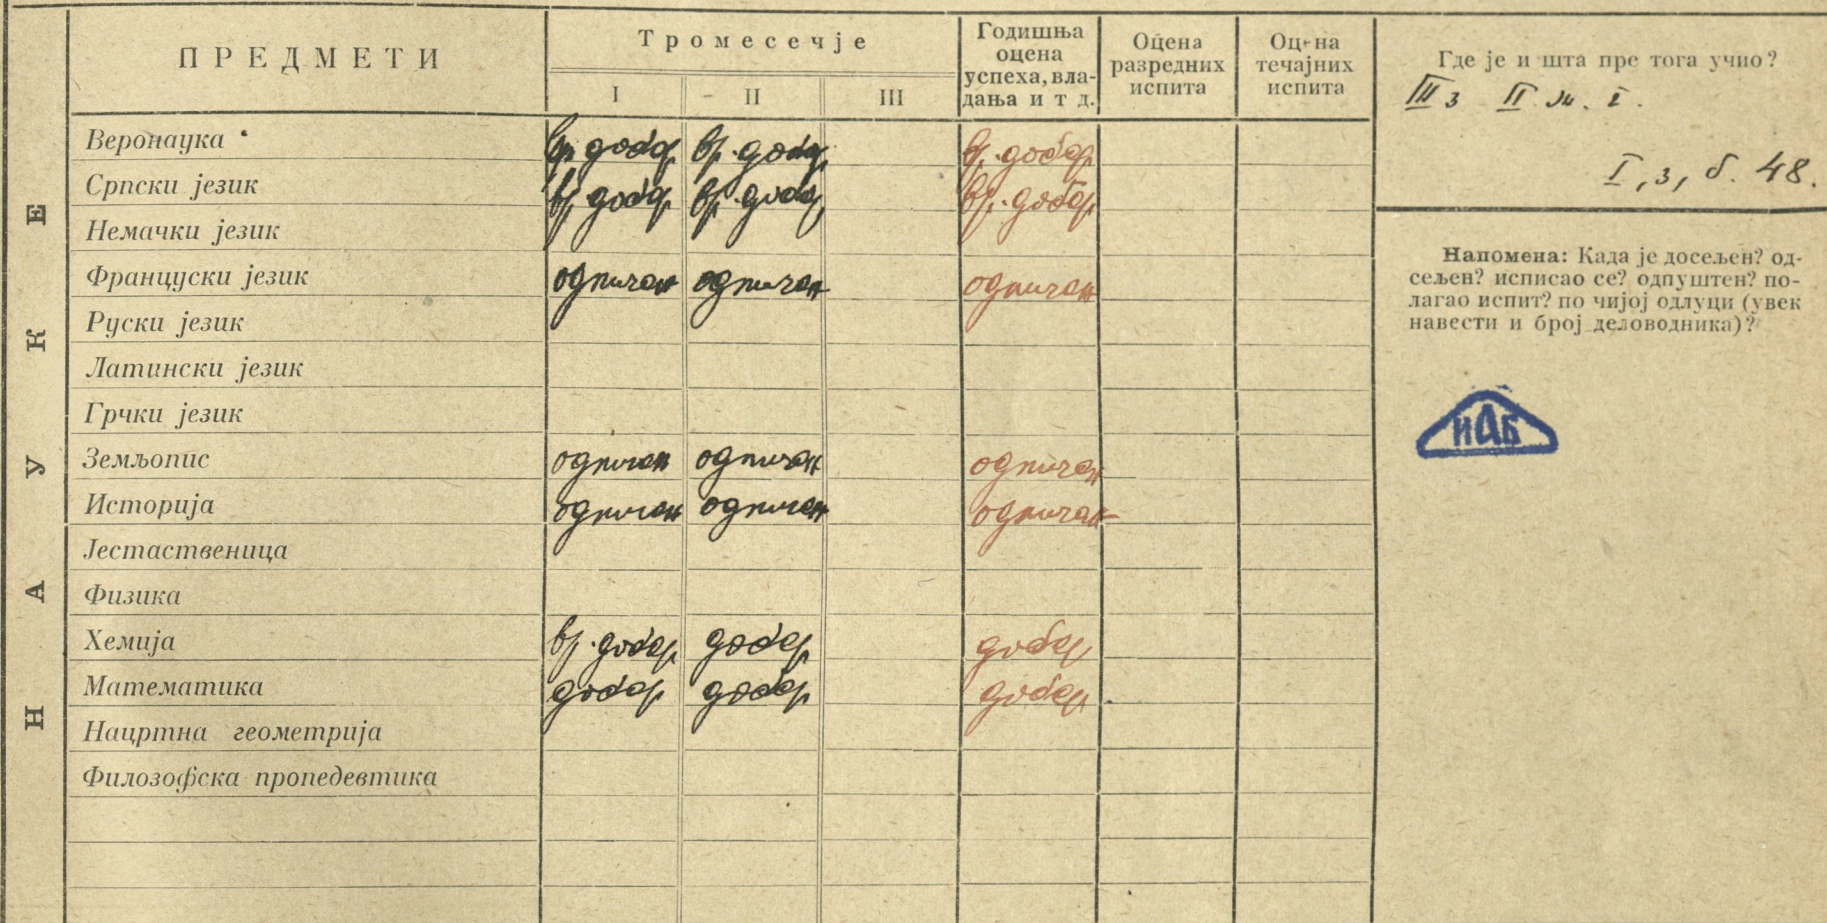 НАУКЕ
ПРЕДМЕТИ
Тромесечје
I II III
Годишња
оцена
успеха, вла-
дања и т д.
Оцена
разредних
испита
Оцена
течајних
испита
Веронаука вр. добар вр. добар вр. добар
Српски језик вр. добар вр. добар вр. добар
Немачки језик
Француски језик одличан одличан одличан
Руски језик
Латински језик
Грчки језик
Земљопис одличан одличан одличан
Историја одличан одличан одличан
Јестаственица
Физика
Хемија вр. добар добар добар
Математика добар добар добар
Нацртна геометрија
Филозофска пропедевтика
Где је и шта пре тога учио?
III з II м. г.
I, з, б. 48.
Напомена: Када је досељен? од-
сељен? исписао се? одпуштен? по-
лагао испит? по чијој одлуци (увек
навести и број деловодника)?
ИАБ